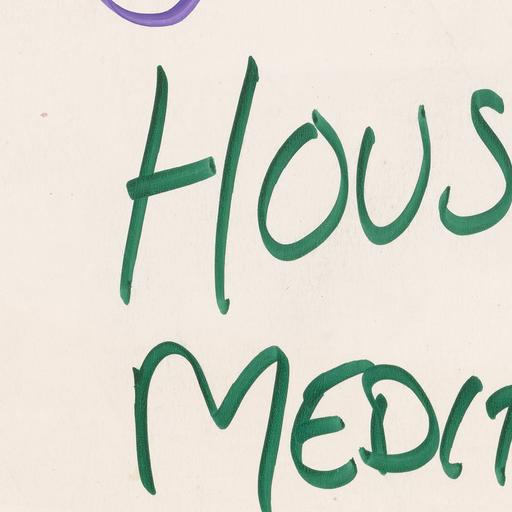 HOUS
MEDI